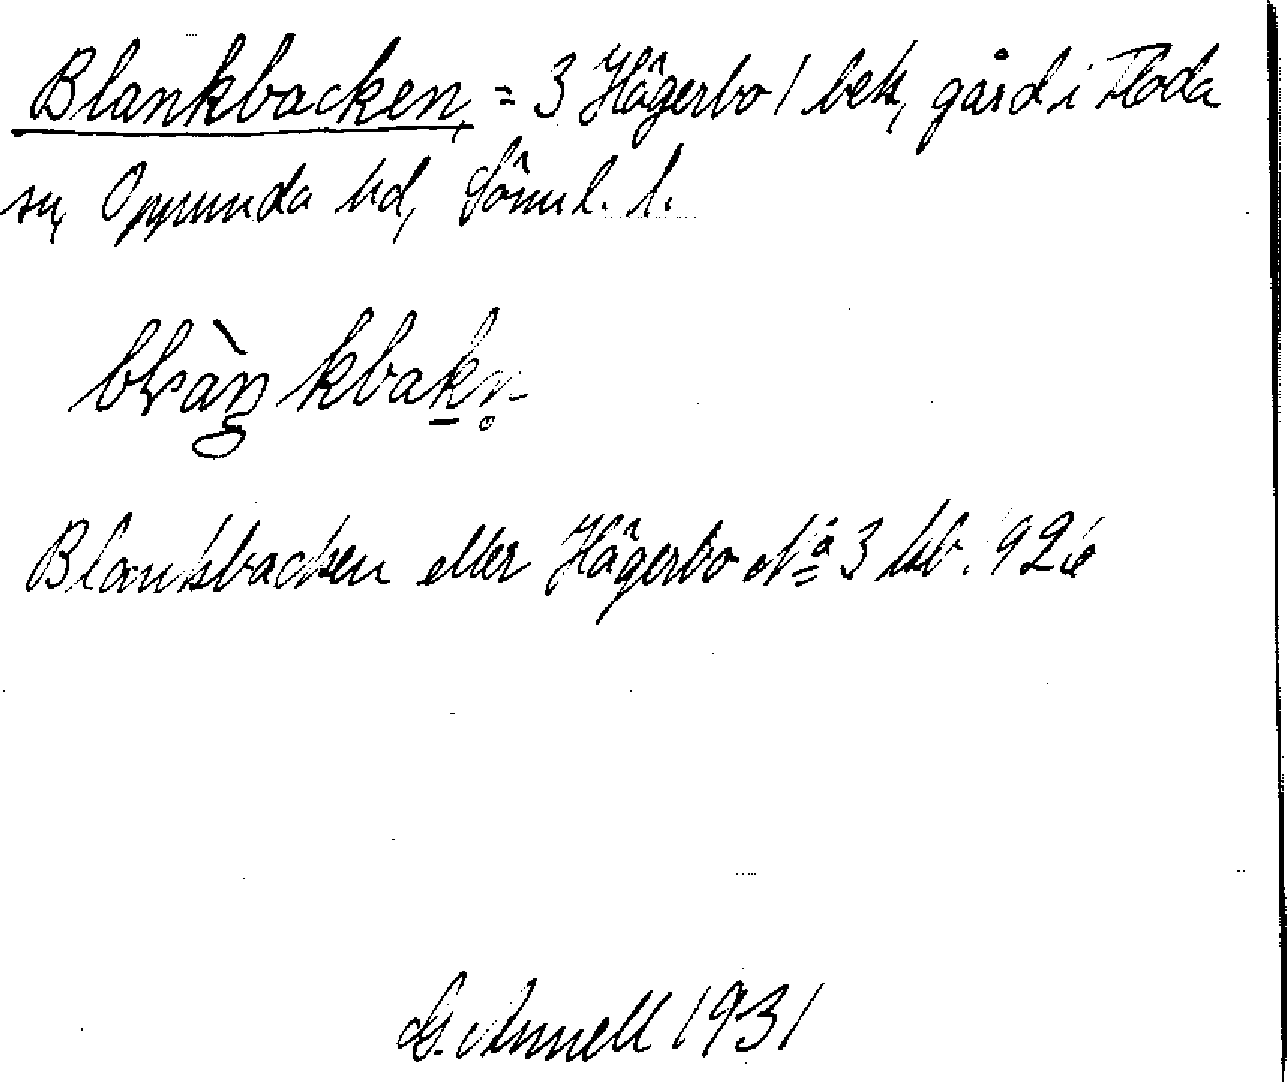 Blankbacken, = 3 Hägerbo 1 bek, gård i Floda
sn, Oppunda hd, Söml. l.
blàŋkbakn̥
Blankbacken eller Hägerbo No 3 kb. 1926
G. Annell 1931